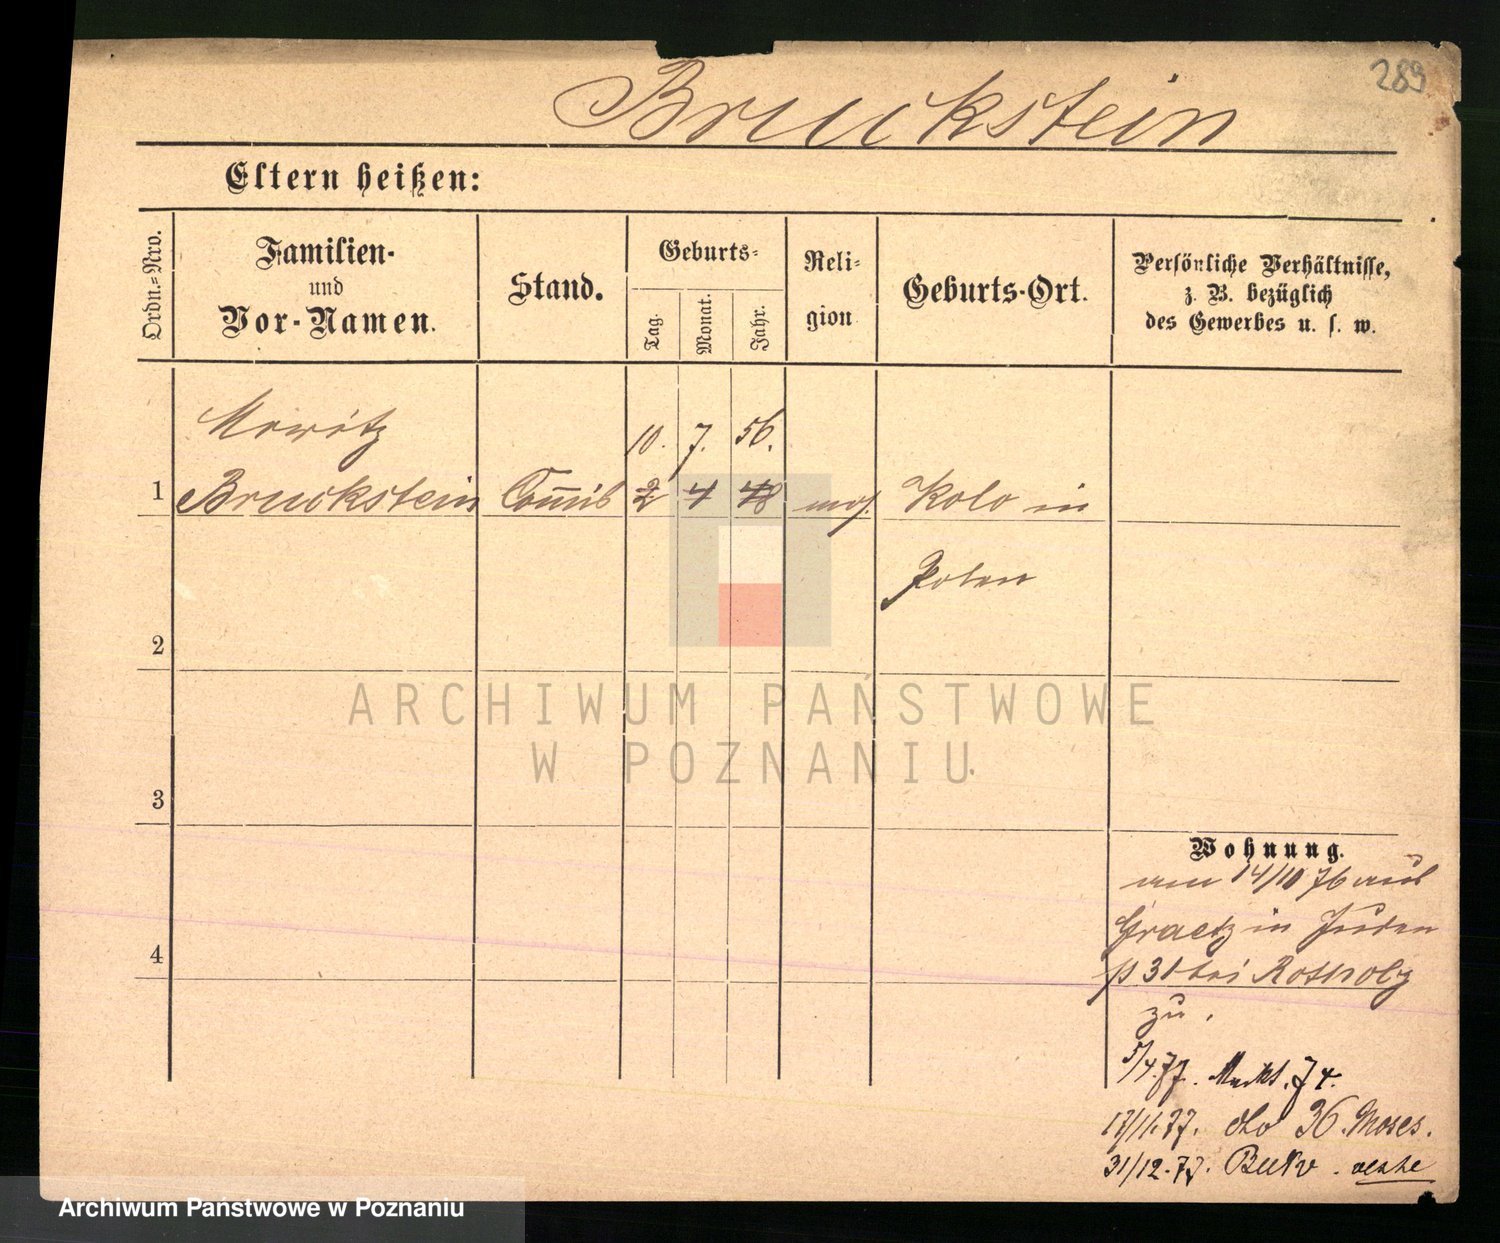 289
Bruckstein
Eltern heißen:
Ordn.-Nro.
Familien-
und
Vor-Namen.
Stand.
Geburts-
Tag.
Monat.
Jahr.
Reli-
gion
Geburts-Ort.
Persönliche Verhältnisse,
z. B. bezüglich
des Gewerbes u. s. w.
Moritz
10. 7. 56.
1 Bruckstein Commis 2 4 48 mos. Kolo in
Polen
2
ARCHIWUM PAŃSTWOWE
W POZNANIU
3
Wohnung.
am 14/10 76 aus
4
Graetz in Juden
p 31 bei Rothholz
zu.
5/4.77. Markt. 74.
17/11.77. dto 36. Moses.
31/12.77.
Archiwum Państwowe w Poznaniu